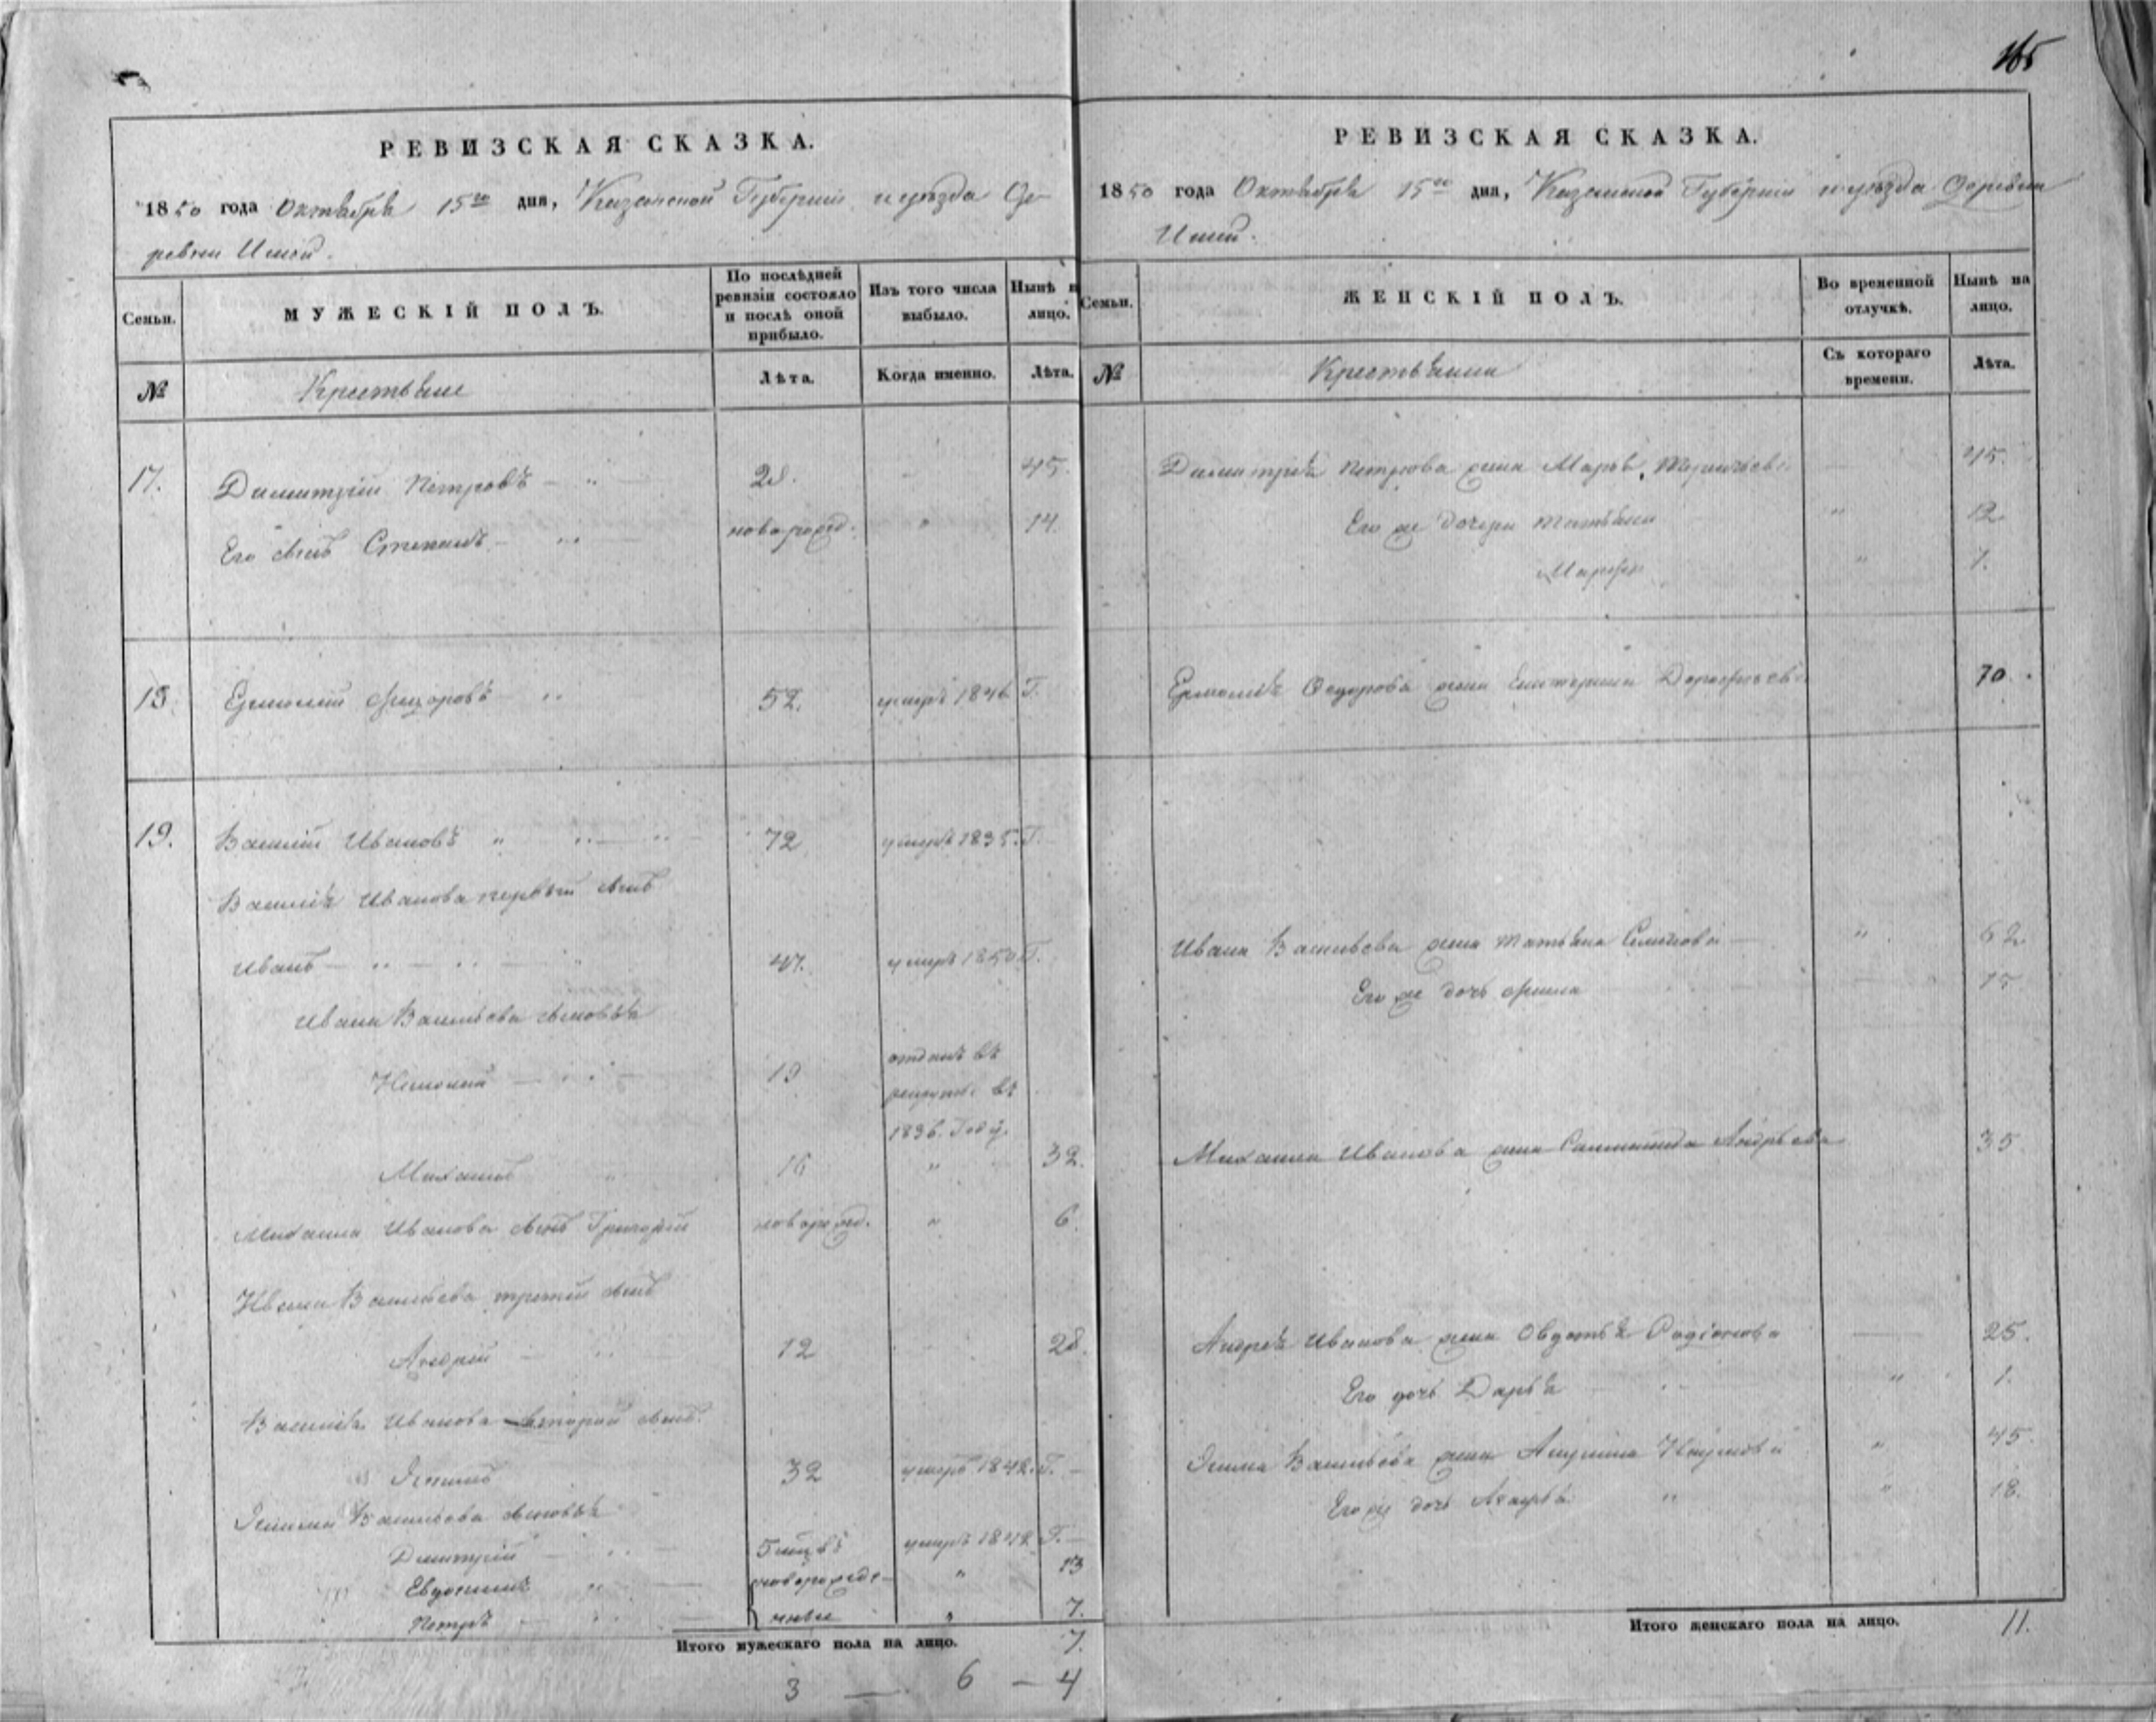 165
РЕВИЗСКАЯ СКАЗКА.
1850 года Октября 15го дня, Казанской Губерніи и уѣзда Де-
ревни
Семьи.
МУЖЕСКІЙ ПОЛЪ.
По послѣдней ревизіи состояло и послѣ оной прибыло.
Изъ того числа выбыло.
Нынѣ н лицо.
№
Крестьяне
Лѣта.
Когда именно.
Лѣта.
17. Димитрій Петровъ 28. 45.
Его сынъ Степанъ новорожд. " 14.
18. Ермолай Ѳедоровъ 52. умеръ 1846 Г.
19. Василій Ивановъ 72 умеръ 1835. Г.
Василія Иванова первый сынъ
Иванъ 47. умеръ 1850 Г.
Ивана Васильева сыновья
19 отданъ въ
рекруты въ
1836. Году.
Михаилъ 16 " 32.
Михаила Иванова сынъ Григорій новорожд. " 6.
Ивана Васильева третій сынъ
Андрей 12 28.
Василія Иванова второй сынъ
32 умеръ 1842. Г.
Васильева сыновья
Димитрій 5 мцвъ умеръ 1842 Г.
Евдокимъ новорожде- " 13
Петръ нные " 7.
Итого мужескаго пола на лицо. 7.
3 — 6 — 4
РЕВИЗСКАЯ СКАЗКА.
1850 года Октября 15го дня, Казанской Губерніи и уѣзда деревни
Семьи.
ЖЕНСКІЙ ПОЛЪ.
Во временной отлучкѣ.
Нынѣ на лицо.
№
Крестьянки
Съ котораго времени.
Лѣта.
Димитрія Петрова жена Марья 45.
Его же дочери Татьяна " 12
Марфа " 7.
Ермолая Ѳедорова жена Екатерина Дорофѣева 70.
Ивана Васильева жена Татьяна Семенова " 62.
Его же дочь 15
Михаила Иванова жена Андрѣева 35
Андрея Иванова жена Овдотья Родіонова 25.
Его дочь Дарья " 1.
Васильева жена Акулина Наумова " 45.
Его же дочь " " 18.
Итого женскаго пола на лицо. 11.